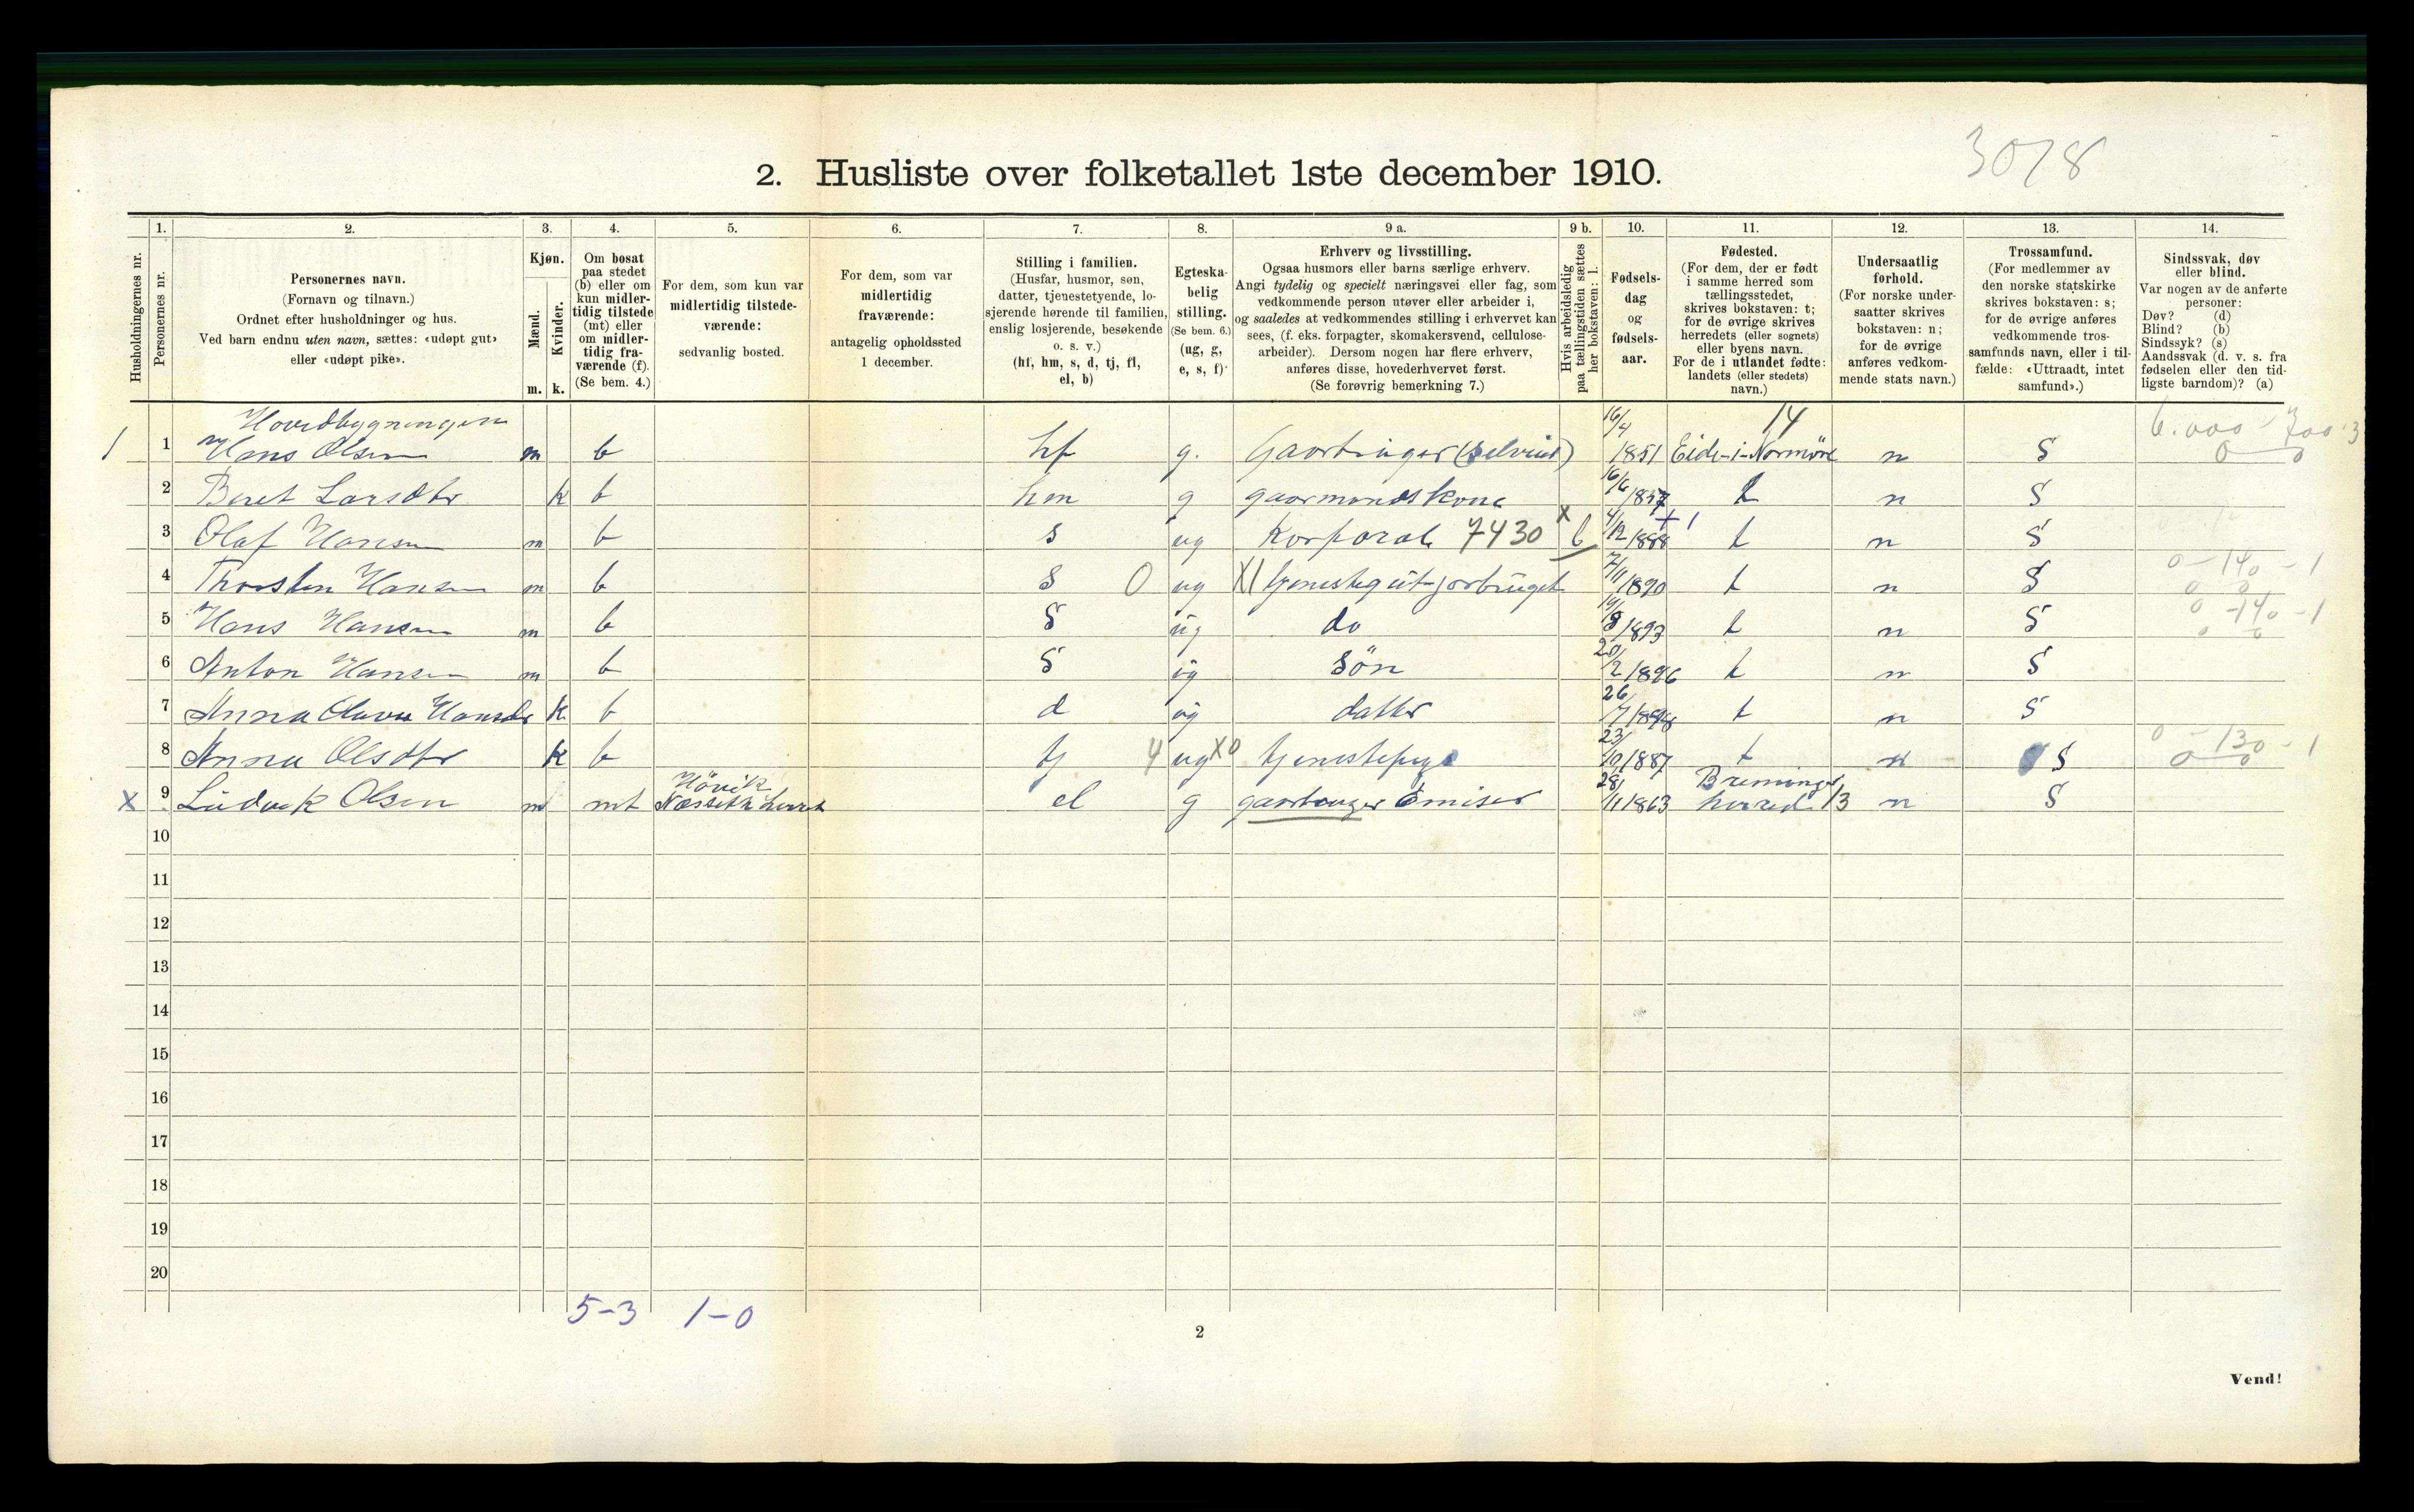 3078
2. Husliste over folketallet 1ste december 1910.
Husholdningernes nr.
1.
Personernes nr.
2.
Personernes navn.
(Fornavn og tilnavn.)
Ordnet efter husholdninger og hus.
Ved barn endnu uten navn, sættes: «udøpt gut»
eller «udøpt pike».
3.
Kjøn.
Mænd.
Kvinder.
m. k.
4.
Om bosat
paa stedet
(b) eller om
kun midler-
tidig tilstede
(mt) eller
om midler-
tidig fra-
værende (f).
(Se bem. 4.)
5.
For dem, som kun var
midlertidig tilstede-
værende:
sedvanlig bosted.
6.
For dem, som var
midlertidig
fraværende:
antagelig opholdssted
1 december.
7.
Stilling i familien.
(Husfar, husmor, søn,
datter, tjenestetyende, lo-
sjerende hørende til familien,
enslig losjerende, besøkende
o. s. v.)
(hf, hm, s, d, tj, fl,
el, b)
8.
Egteska-
belig
stilling.
(Se bem. 6.)
(ug, g,
e, s, f)
9 a.
Erhverv og livsstilling.
Ogsaa husmors eller barns særlige erhverv.
Angi tydelig og specielt næringsvei eller fag, som
vedkommende person utøver eller arbeider i,
og saaledes at vedkommendes stilling i erhvervet kan
sees, (f. eks. forpagter, skomakersvend, cellulose-
arbeider). Dersom nogen har flere erhverv,
anføres disse, hovederhvervet først.
(Se forøvrig bemerkning 7.)
9 b.
Hvis arbeidsledig
paa tællingstiden sættes
her bokstaven: l.
10.
Fødsels-
dag
og
fødsels-
aar.
11.
Fødested.
(For dem, der er født
i samme herred som
tællingsstedet,
skrives bokstaven: t;
for de øvrige skrives
herredets (eller sognets)
eller byens navn.
For de i utlandet fødte:
landets (eller stedets)
navn.)
12.
Undersaatlig
forhold.
(For norske under-
saatter skrives
bokstaven: n;
for de øvrige
anføres vedkom-
mende stats navn.)
13.
Trossamfund.
(For medlemmer av
den norske statskirke
skrives bokstaven: s;
for de øvrige anføres
vedkommende tros-
samfunds navn, eller i til-
fælde: «Uttraadt, intet
samfund».)
14.
Sindssvak, døv
eller blind.
Var nogen av de anførte
personer:
Døv? (d)
Blind? (b)
Sindssyk? (s)
Aandssvak (d. v. s. fra
fødselen eller den tid-
ligste barndom)? (a)
Hovedbygningen
1 1 Hans Olsen m b hf g. Gaardbruger (selveier) 16/4 1851 14 Eide-i-Normöre n S 6.000 - 700 - 3 0 0
2 Beret Larsdtr k b hm g gaarmandskone 16/6 1857 t n S
3 Olaf Hansen m b s ug Korporal 7430 x l 4/12 1888 + 1 t n S
4 Thorsten Hansen m b S 0 ug X1 tjenestegut-jorbruget 7/11 1890 t n S 0 - 140 - 1 0 0
5 Hans Hansen m b S ug do 19/8 1893 t n S 0 - 140 - 1 0 0
6 Anton Hansen m b S ug Sön 20/2 1896 t n S
7 Anna Hansdr k b d ug datter 26/7 1898 t n S
8 Anna Olsdtr k b tj 4 ug X0 tjenestepige 23/10 1887 t n S 0 - 130 - 1 0 0
x 9 Ludvik Olsen m mt Hövik Nessett herred el g gaardbruger Emisær 28/11 1863 Bremsnes herred 13 n S
10
11
12
13
14
15
16
17
18
19
20
5-3 1-0
2
Vend!